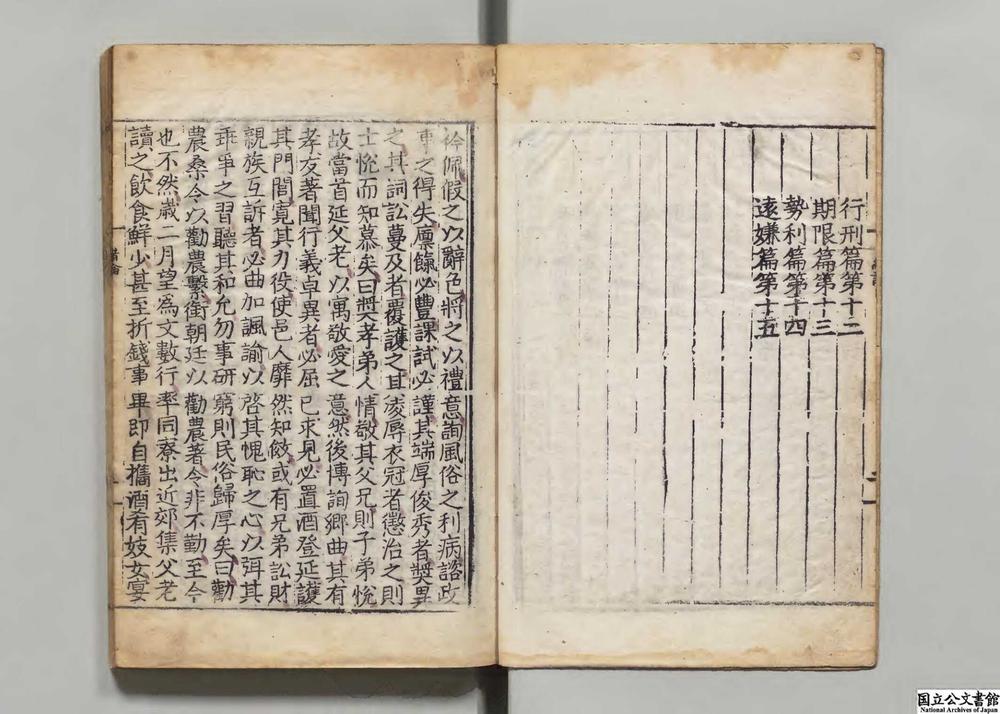 行刑篇第十二
期限篇第十三
勢利篇第十四
遠嫌篇第十五
衿佩假之以辭色將之以禮意詢風俗之利病諮政
事之得失廩餼必豐課試必謹其端厚俊秀者奬異
之其詞訟蔓及者覆護之其凌辱衣冠者懲治之則
士悅而知慕矣曰奬孝弟人情敬其父兄則子弟悅
故當首延父老以寓敬愛之意然後博詢鄉曲其有
孝友著聞行義卓異者必屈己求見必置酒登延護
其門閭寬其力役使邑人靡然知效或有兄弟訟財
親族互訴者必曲加諷諭以啓其愧恥之心以弭其
乖爭之習聽其和允勿事研窮則民俗歸厚矣曰勸
農桑令以勸農繫銜朝廷以勸農著令非不勤至今
也不然歲二月望爲文數行率同寮出近郊集父老
讀之飲食鮮少甚至折錢事畢即自攜酒肴妓女宴
国立公文書館
National Archives of Japan